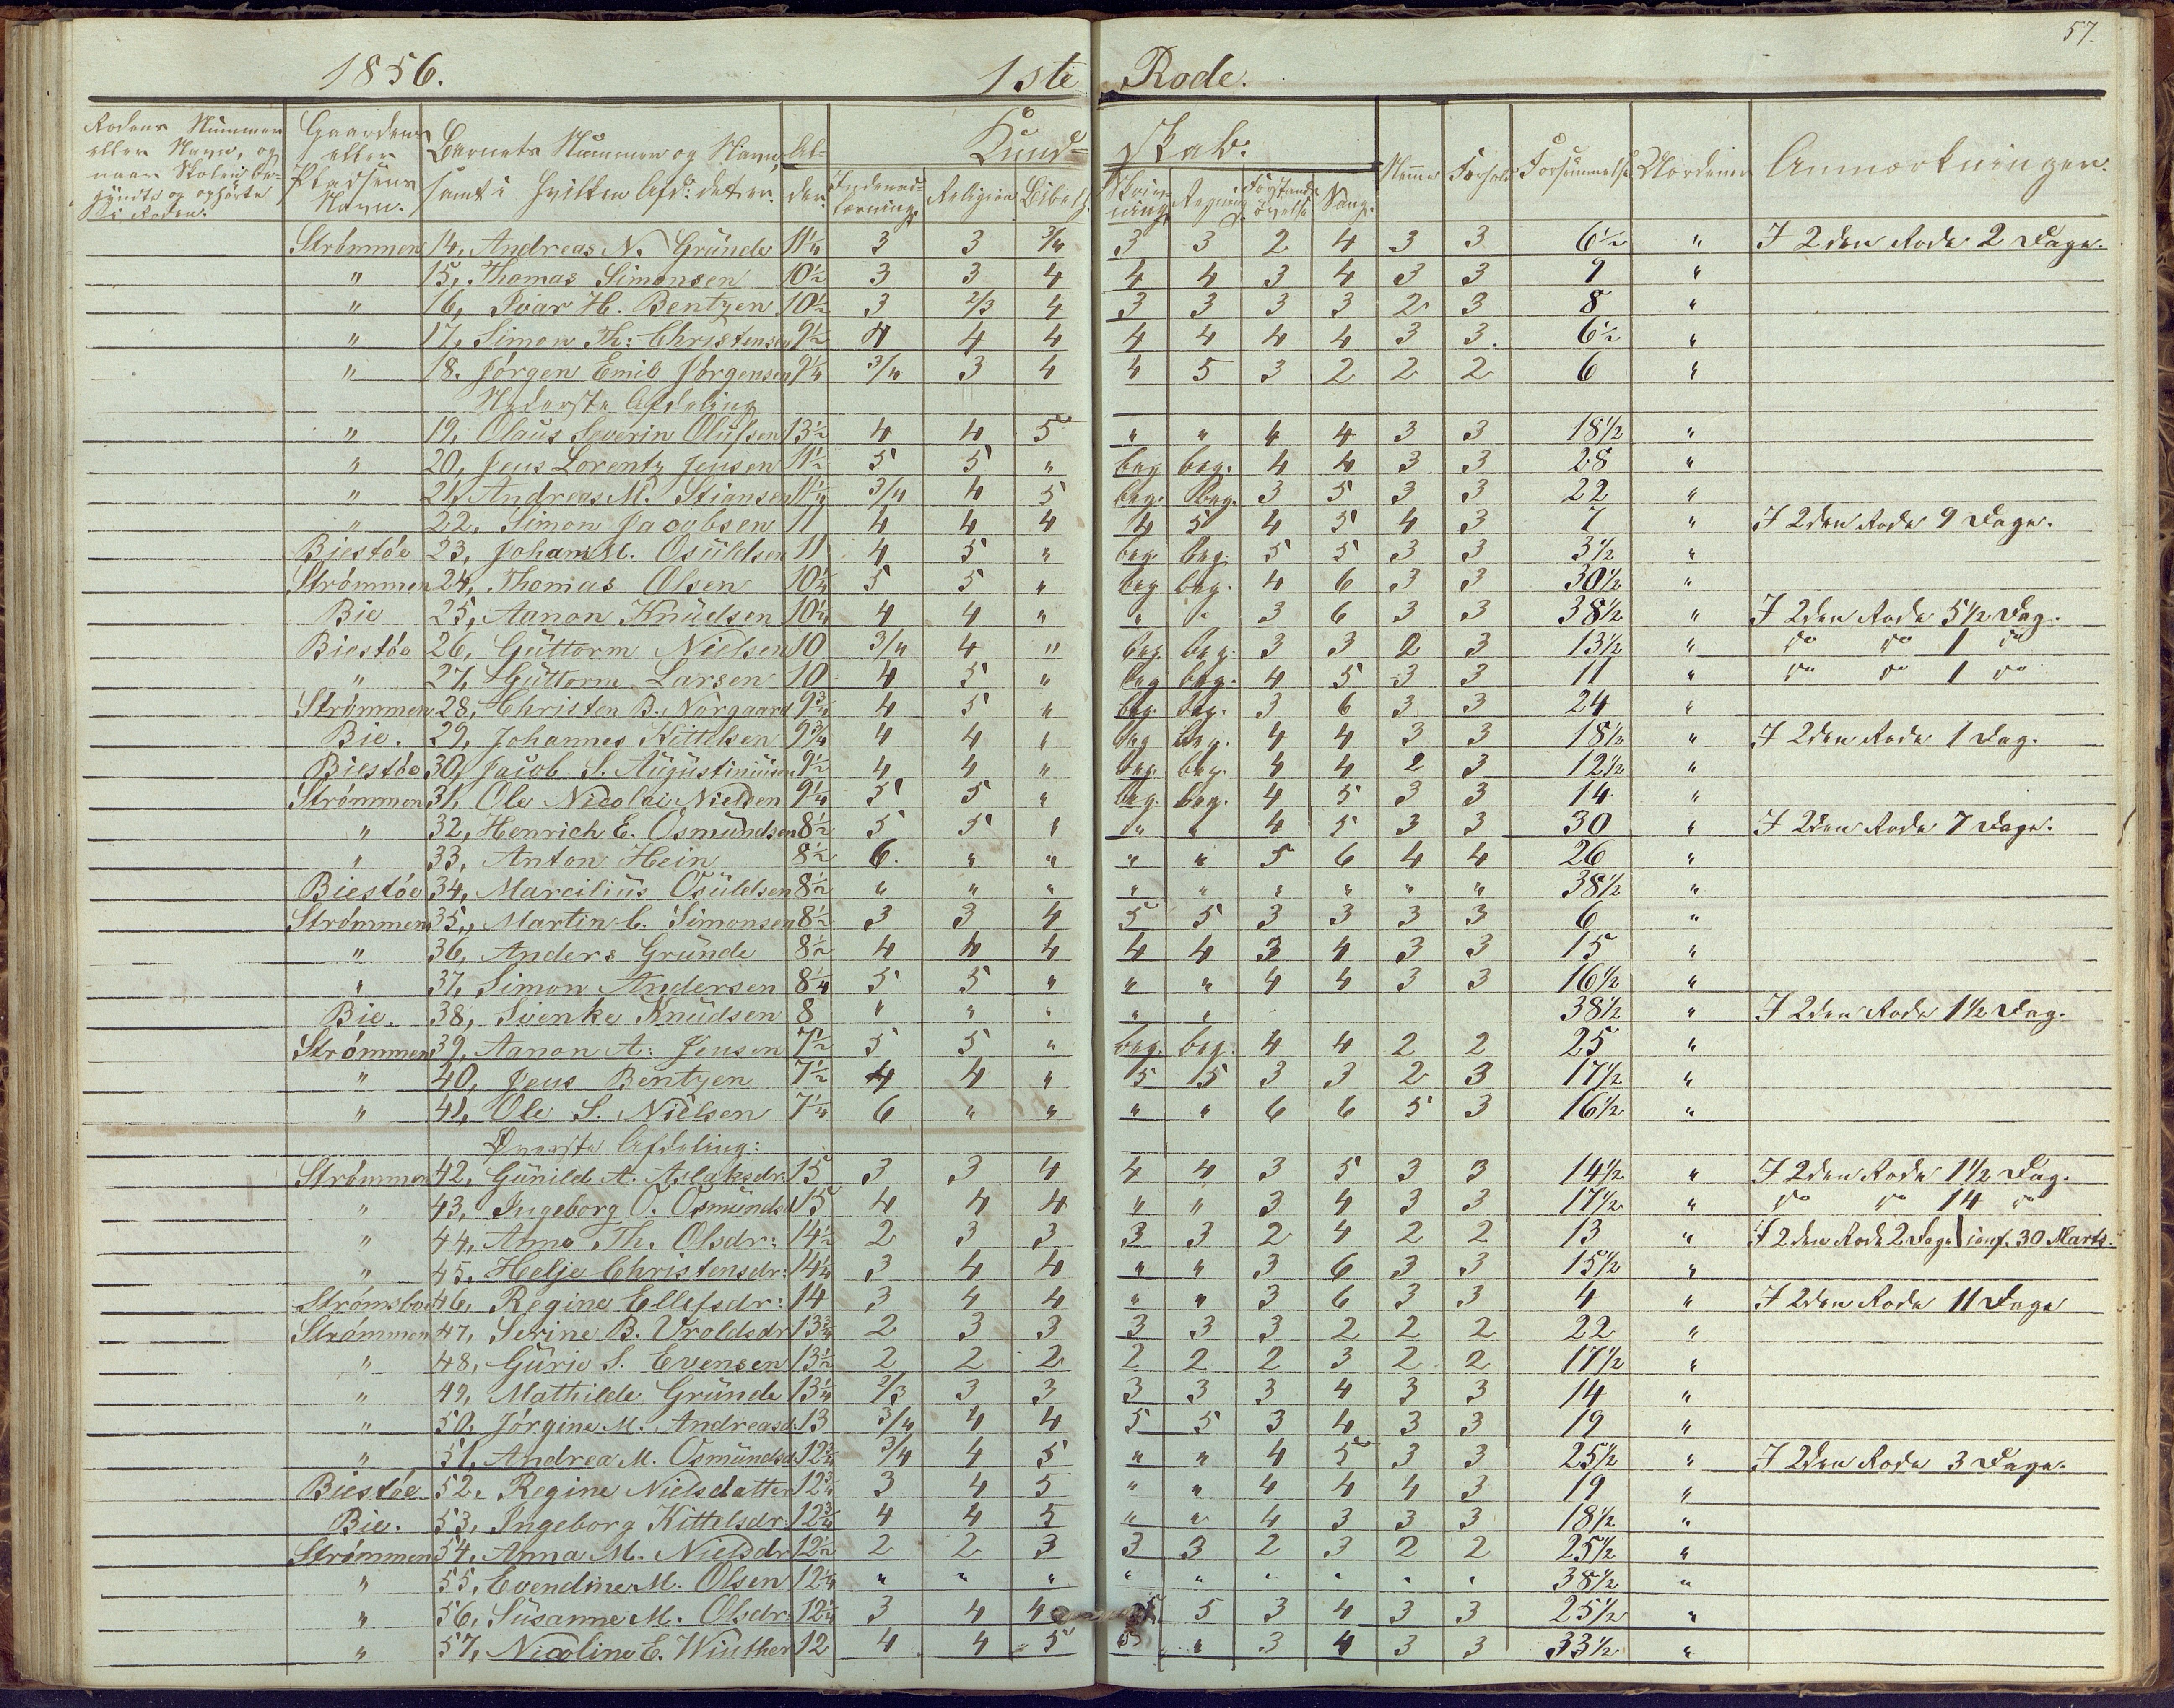 57.
1856. 1ste Rode.
Rodens Nummer eller Navn, og naar Skolen begyndte og ophørte i Roden. Gaardens eller Pladsens Navn. Barnets Nummer og Navn, samt i hvilken Afd: det er. Alder. Kundskab: Indenadlæsning. Religion Bibelh. Skrivning. Regning Forstandsøvelse Sang. Nemme Forhold Forsømmelse Uordener Anmærkninger.
Strømmen 14, Andreas N. Gründe 11¼ 3 3 3/4 3 3 2 4 3 3 6½ " I 2den Rode 2 Dage.
" 15, Thomas Simonsen 10½ 3 3 4 4 4 3 4 3 3 9 "
" 16, Ivar H. Bentzen 10½ 3 2/3 4 3 3 3 3 2 3 8 "
" 17, Simon Th: Christensen 9½ 4 4 4 4 4 4 4 3 3. 6½ "
" 18. Jørgen Emil Jørgensen 9¼ 3/4 3 4 4 5 3 2 2 2 6 "
Nederste Afdeling
" 19, Olaüs Severin Olüfsen 13½ 4 4 5 " " 4 4 3 3 18½ "
" 20, Jens Lorentz Jensen 11½ 5 5 " beg beg. 4 4 3 3 28 "
" 21, Andreas M. Stiansen 11¼ 3/4 4 5 beg. beg. 3 5 3 3 22 "
" 22, Simon Jacobsen 11 4 4 4 4 5 4 5 4 3 7 " I 2den Rode 9 Dage.
Biestøe 23, Johan M. Osüldsen 11 4 5 " beg. beg. 5 5 3 3 3½ "
Strømmen 24, Thomas Olsen 10¼ 5 5 " beg beg. 4 6 3 3 30½ "
Bie 25, Aanon Knüdsen 10¼ 4 4 " " " 3 6 3 3 38½ " I 2den Rode 5½ Dag.
Biestøe 26, Güttorm Nielsen 10 3/4 4 " beg. beg. 3 3 2 3 13½ " do do 1 do
" 27, Güttorm Larsen 10 4 5 " beg beg. 4 5 3 3 11 " do do 1 do
Strømmen 28, Christen B. Norgaard 9¾ 4 5 " beg. beg. 3 6 3 3 24 "
Bie. 29, Johannes Kittelsen 9¾ 4 4 " beg beg. 4 4 3 3 18½ " I 2den Rode 1 Dag.
Biestøe 30, Jacob S. Aügüstinüsen 9½ 4 4 " beg. beg. 4 4 2 3 12½ "
Strømmen 31, Ole Nicolai Nielsen 9¼ 5 5 " beg. beg. 4 5 3 3 14 "
" 32, Henrich E. Osmündsen 8½ 5 5 " " " 4 5 3 3 30 " I 2den Rode 7 Dage.
" 33, Anton Hein 8½ 6. " " " " 5 6 4 4 26 "
Biestøe 34, Marcilius Osüldsen 8½ " " " " " " " " " 38½ "
Strømmen 35, Martin C. Simonsen 8½ 3 3 4 5 5 3 3 3 3 6 "
" 36, Anders Gründe 8½ 4 4 4 4 4 3 4 3 3 15 "
" 37, Simon Andersen 8¼ 5 5 " " " 4 4 3 3 16½ "
Bie. 38, Svenke Knüdsen 8 " " " " " 38½ " I 2den Rode 1½ Dag.
Strømmen 39, Aanon A: Jensen 7½ 5 5 " beg. beg. 4 4 2 2 25 "
" 40, Jens Bentzen 7½ 4 4 " 5 5 3 3 2 3 17½ "
" 41, Ole S. Nielsen 7¼ 6 " " " " 6 6 5 3 16½ "
Øverste Afdeling:
Strømmen 42, Günild A. Aslaksdr. 15 3 3 4 4 4 3 5 3 3 14½ " I 2den Rode 1½ Dag.
" 43, Ingeborg O. Osmündsd 15 4 4 4 " " 3 4 3 3 17½ " do do 14 do
" 44, Anne Th. Olsdr: 14½ 2 3 3 3 3 2 4 2 2 13 " I 2den Rode 2 Dage conf. 30 Marts.
" 45, Helje Christensdr: 14¼ 3 4 4 " " 3 6 3 3 15½ "
46, Regine Ellefsdr: 14 3 4 4 " " 3 6 3 3 4 " I 2den Rode 11 Dage
Strømmen 47, Serine B. Uroldsdr 13¾ 2 3 3 3 3 3 2 2 2 22 "
" 48, Gürie S. Evensen 13½ 2 2 2 2 2 2 3 2 2 17½ "
" 49, Mathilde Gründe 13¼ 2/3 3 3 3 3 3 4 3 3 14 "
" 50, Jørgine M. Andreasd. 13 3/4 4 4 5 5 3 4 3 3 19 "
" 51, Andrea M. Osmündsd 12¾ 3/4 4 5 " " 4 5 3 3 25½ " I 2den Rode 3 Dage.
Biestøe 52, Regine Nielsdatter 12¾ 3 4 5 " " 4 4 4 3 19 "
Bie. 53, Ingeborg Kittelsdr. 12¾ 4 4 5 " " 4 3 3 3 18½ "
Strømmen 54, Anna M. Nielsdr 12½ 2 2 3 3 3 2 3 2 2 25½ "
" 55, Evendine M. Olsen 12¼ " " " " " " " " " 38½ "
" 56, Süsanne M. Olsdr: 12¼ 3 4 4 5 3 4 3 3 25½ "
" 57, Nicoline E. Winther 12 4 4 5 5 " 3 4 3 3 33½ "